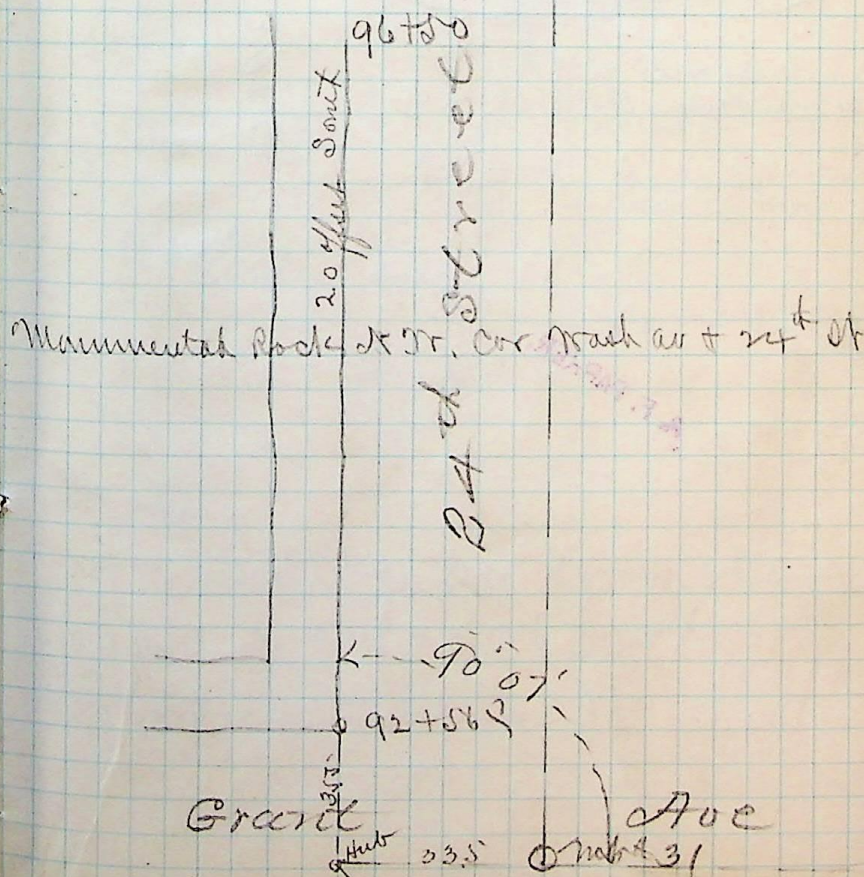 96+50
20 offset South
24th Street
Monumental Rock N W. cor Wash av + 24th St
90° 07'
92+56
Grant Ave
Hub 33.5 31